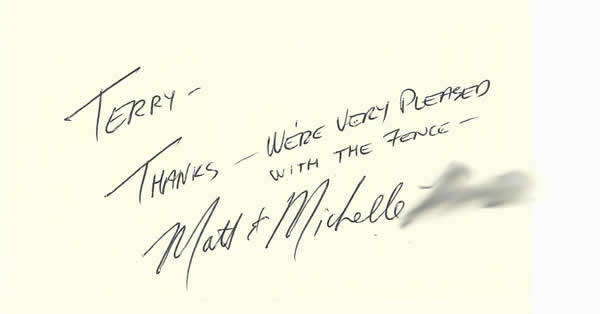 TERRY -
THANKS - WE'RE VERY PLEASED
WITH THE FENCE -
Matt & Michelle